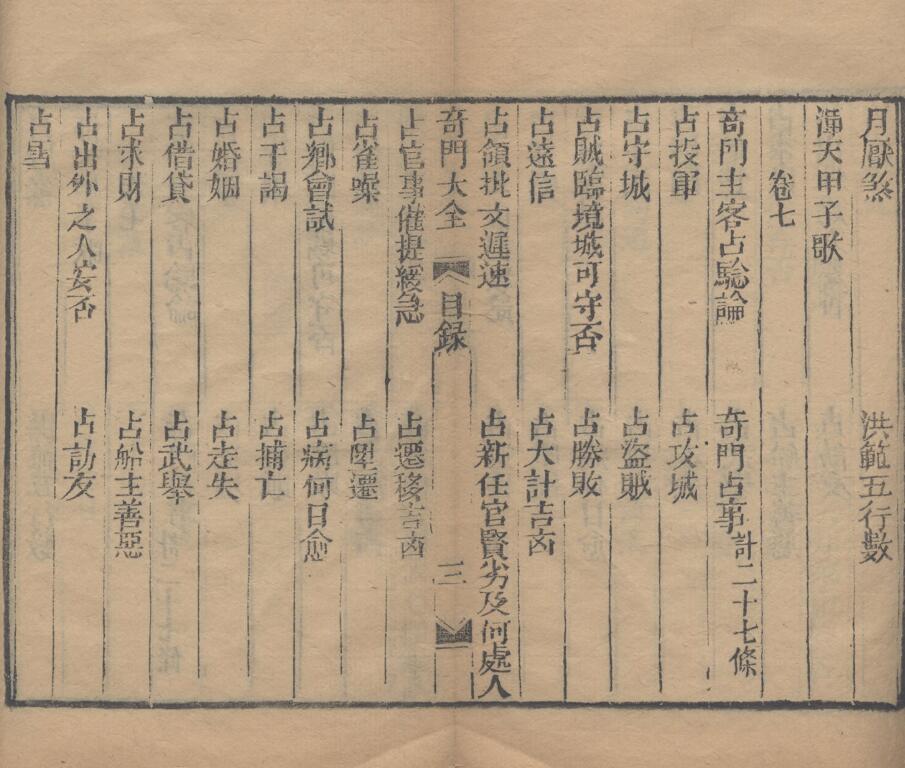 月厭煞　洪範五行數
渾天甲子歌
卷七
奇門主客占驗論　奇門占事計二十七條
占投軍　占攻城
占守城　占盜賊
占賊臨境城可守否　占勝敗
占遠信　占大計吉凶
占領批文遲速　占新任官賢劣及何處人
奇門大全　目録　三
占官事催提緩急　占遷移吉凶
占雀噪　占陞遷
占鄉會試　占病何日愈
占干謁　占捕亡
占婚姻　占走失
占借貸　占武舉
占求財　占船主善惡
占出外之人安否　占訪友
占雪